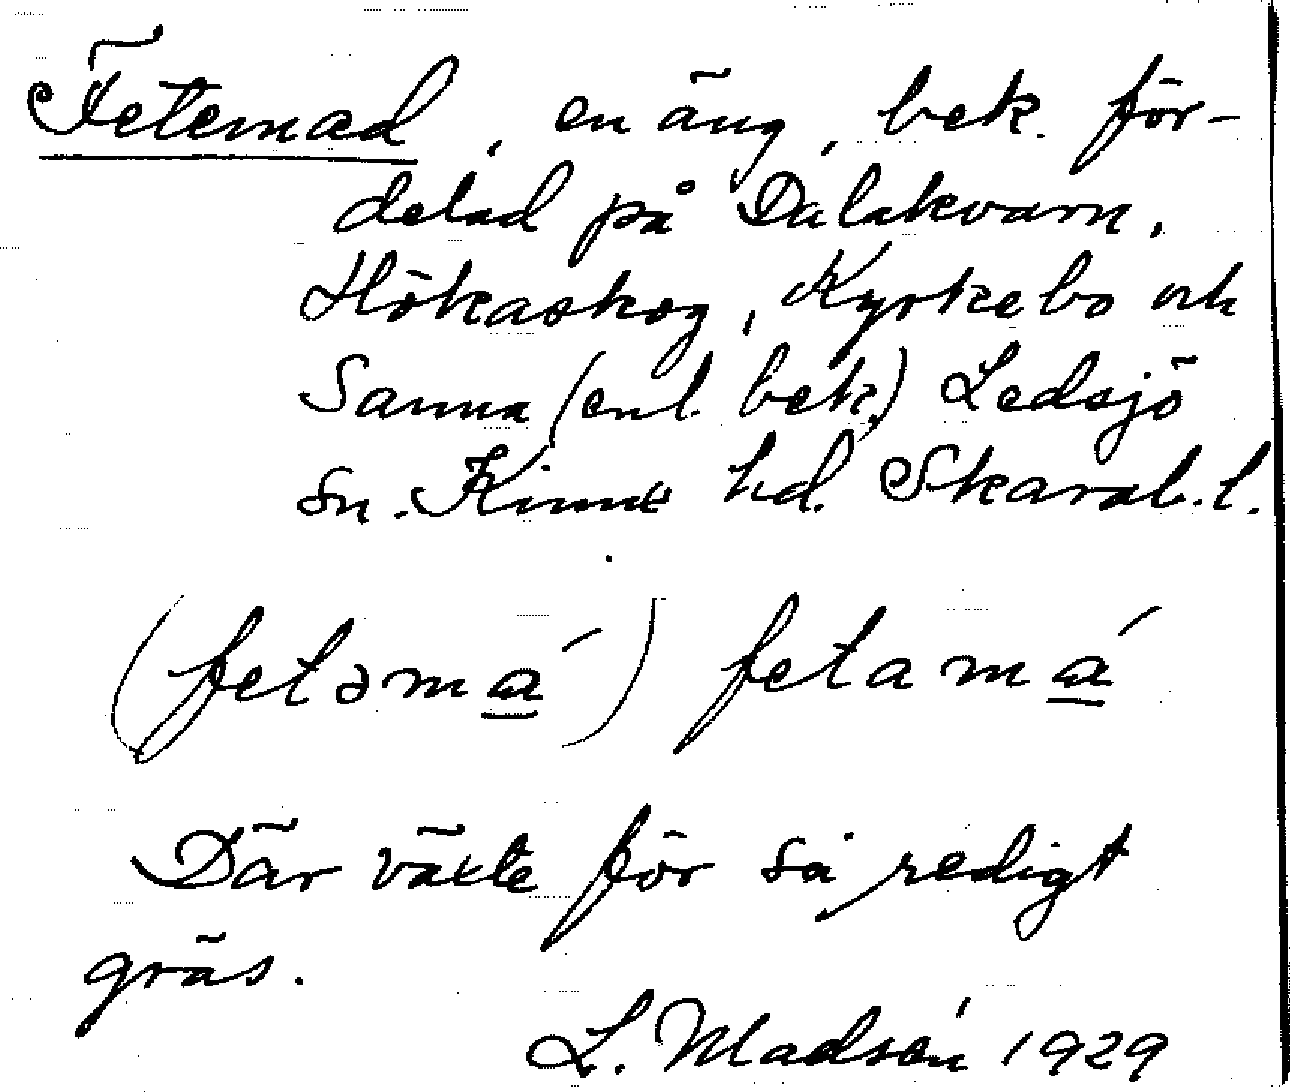 Fetemad, en äng, bek. för-
delad på Dalakvarn,
Hökaskog, Kyrkebo och
Sanna (enl. bek.) Ledsjö
sn. Kinne hd. Skarab. l.
(fetəmá̲) fetamá̲
Där växte för så redigt
gräs.
L. Madsén 1929